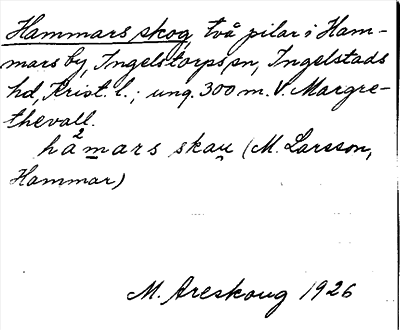 Hammars skog, två pilar i Ham-
mars by, Ingelstorps sn, Ingelstads
hd, Krist. l.; ung. 300 m. V. Margre-
thevall.
ha²mars skau̯ (M. Larsson,
Hammar)
M. Areskoug 1926